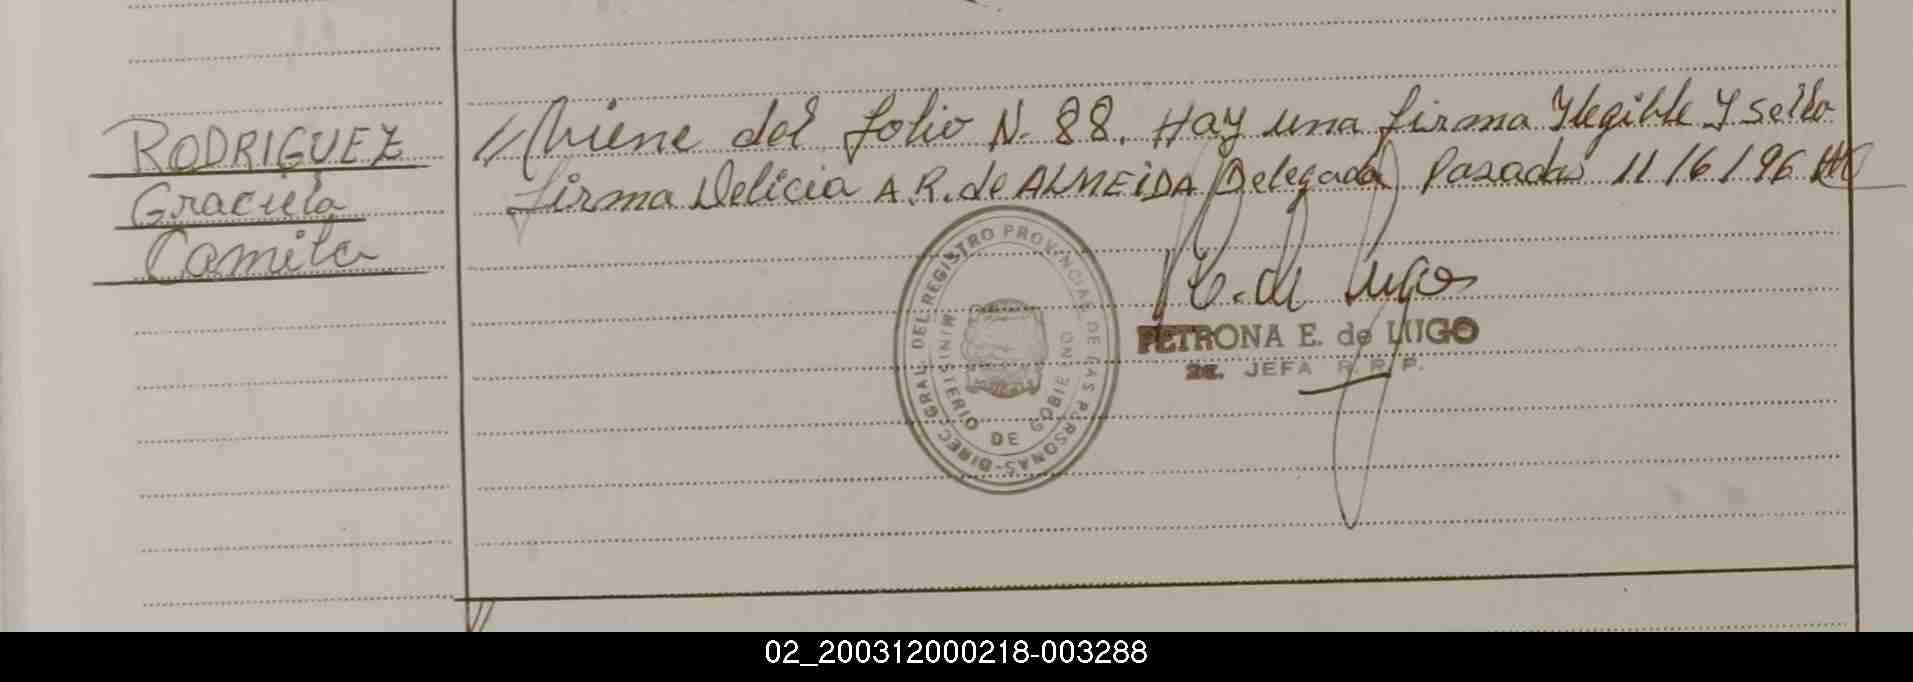 RODRIGUEZ
Graciela
Camila
//Viene del folio N. 88. Hay una firma Ylegible Y sello
firma Delicia A.R. de ALMEIDA Delegada Posadas 11/6/96
P. de Lugo
PETRONA E. de LUGO
2a. JEFA R. P. P.
DIREC. GRAL. DEL REGISTRO PROVINCIAL DE LAS PERSONAS
MINISTERIO DE GOBIERNO
02_200312000218-003288